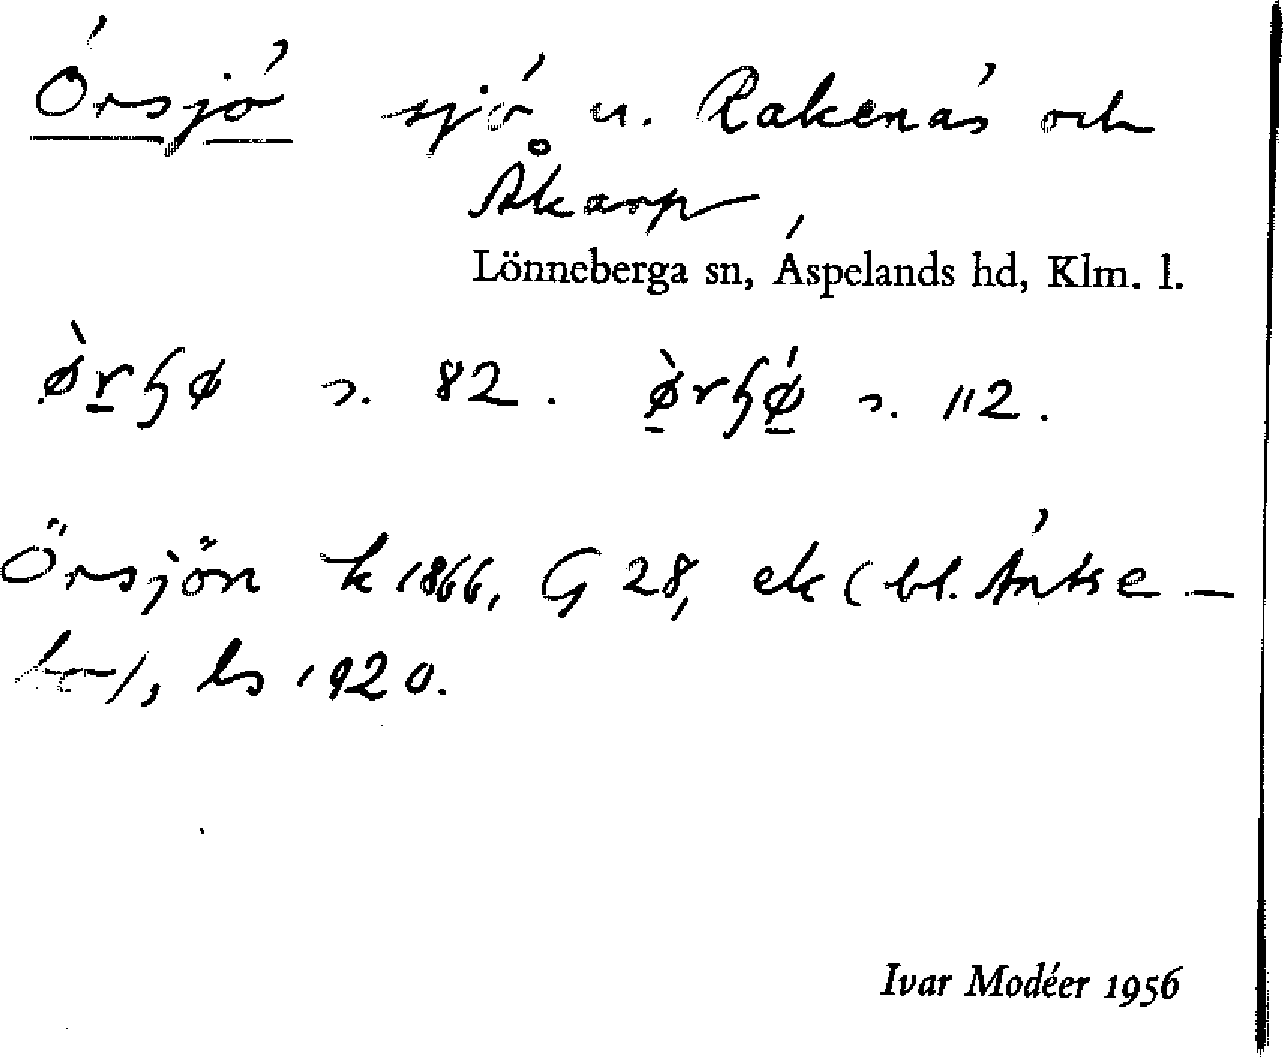 Órsjó sjó u. Rakenás och
Åkarp
Lönneberga sn, Áspelands hd, Klm. l.
s. 82. s. 112.
Örsjön k 1866, G 28, ek (bl. Ánkse-
bo), ls 1920.
Ivar Modéer 1956